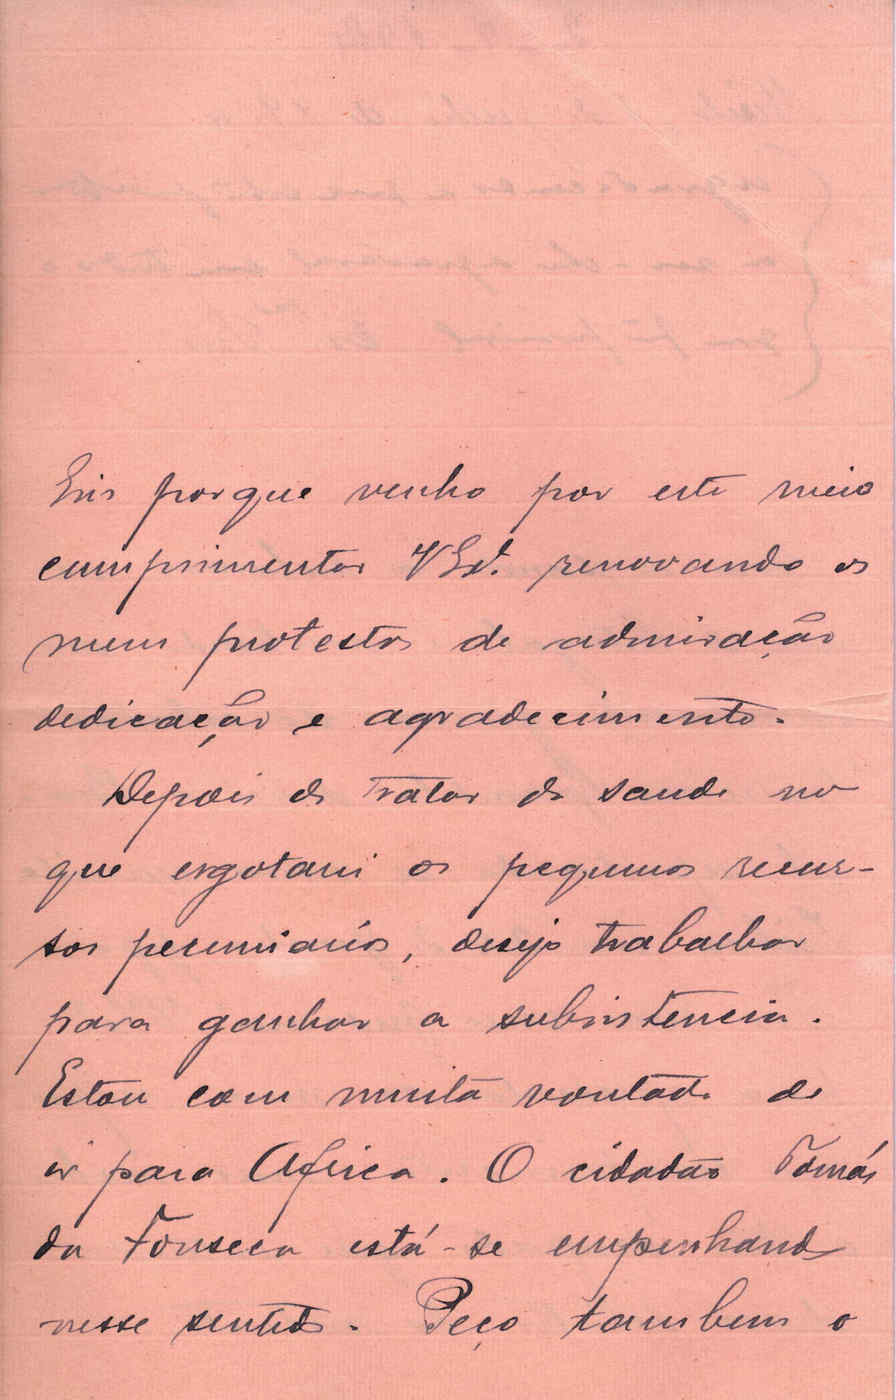 Eis porque venho por este meio
cumprimentar V Ex.ª renovando os
meus protestos de admiração
dedicação e agradecimento.
Depois de tratar da saude no
que esgotarei os pequenos recur-
sos pecuniarios, desejo trabalhar
para ganhar a subsistencia.
Estou com muita vontade de
ir para Africa. O cidadão Tomás
da Fonseca está-se empenhando
nesse sentido. Peço tambem o